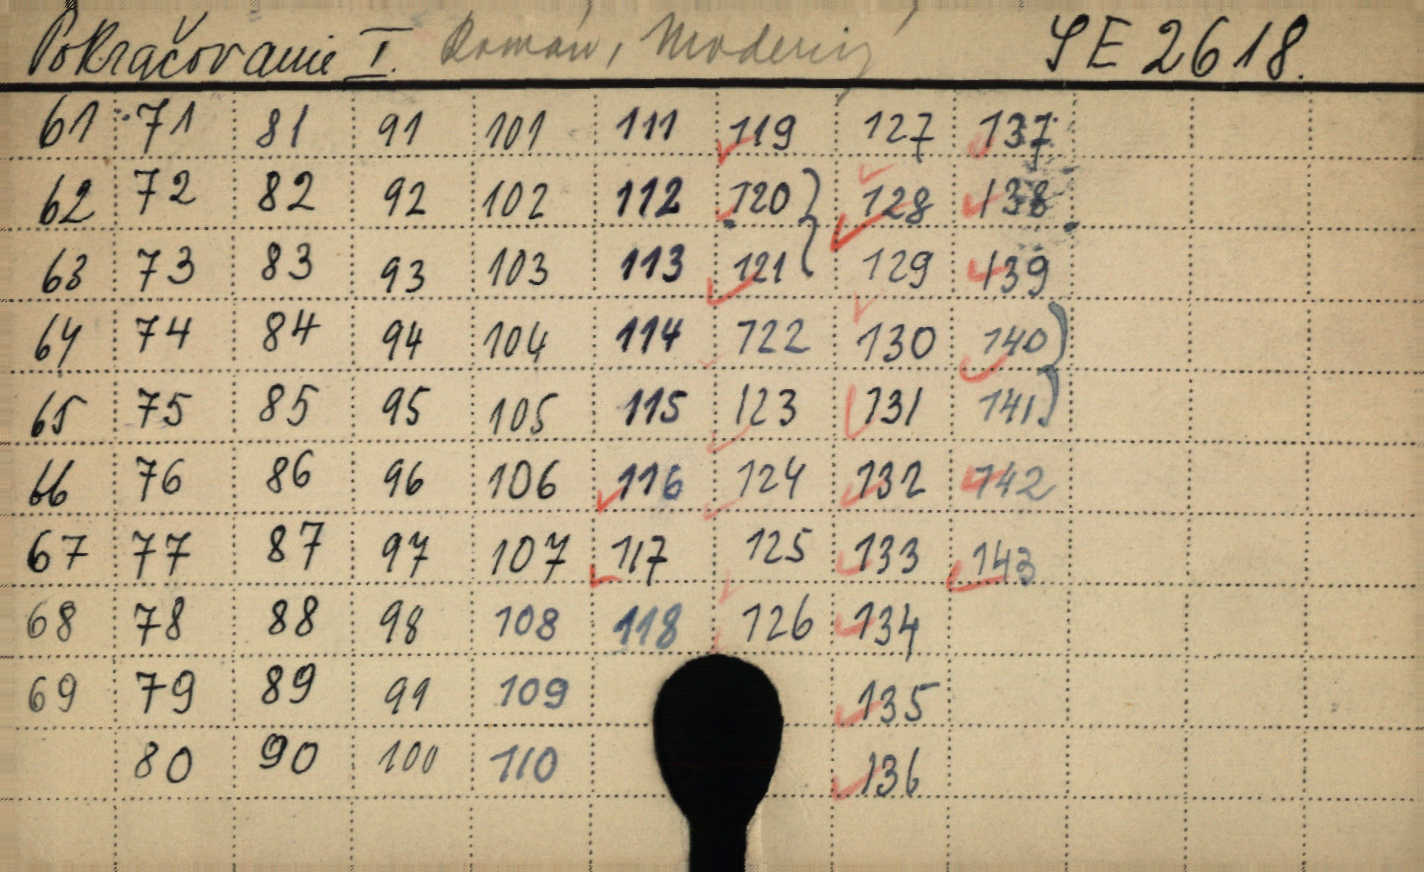 Pokračovanie I. Román, Moderný SE 2618.
61 71 81 91 101 111 119 127 137
62 72 82 92 102 112 120 128 138
63 73 83 93 103 113 121 129 139
64 74 84 94 104 114 122 130 140
65 75 85 95 105 115 123 131 141
66 76 86 96 106 116 124 132 142
67 77 87 97 107 117 125 133 143
68 78 88 98 108 118 126 134
69 79 89 99 109 135
80 90 100 110 136